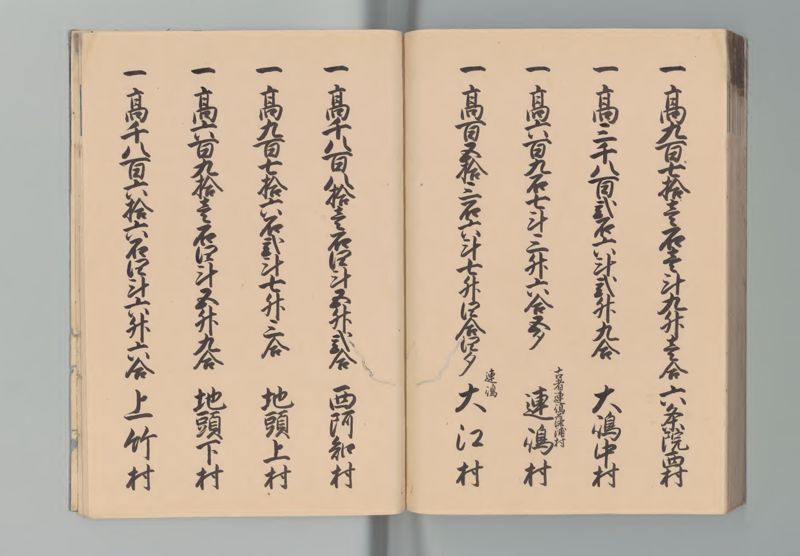 一高九百七拾壱石壱斗九升壱合 六条院西村
一高三千八百弐石六斗弐升九合 大嶋中村
一高六百九石七斗三升六合五夕 連嶋村
古者連嶋
一高百五拾三石六斗七升四合四夕 大江村
連嶋
一高千八百八拾壱石四斗五升弐合 西阿知村
一高九百七拾六石弐斗七升三合 地頭上村
一高六百九拾壱石四斗五升九合 地頭下村
一高千八百六拾六石四斗六升六合 上竹村